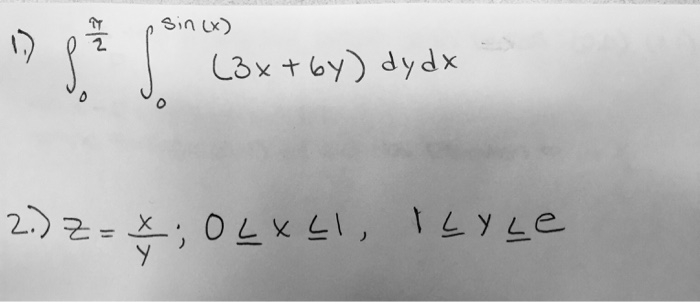 1.) ∫₀^(π/2) ∫₀^(sin(x)) (3x + 6y) dydx
2.) z = x/y ; 0 ≤ x ≤ 1, 1 ≤ y ≤ e